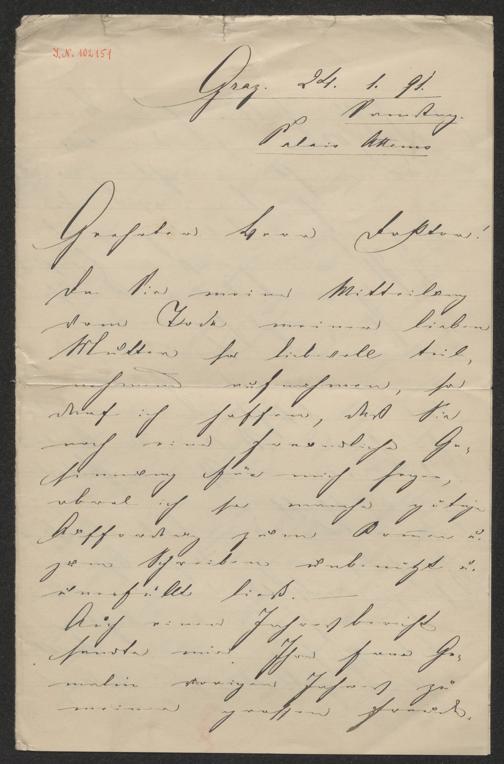 I.N. 102151
Graz. 24. 1. 91.
Samstag.
Palais Attems
Geehrter Herr Doktor!
Da Sie meine Mitteilung
vom Tode meiner lieben
Mutter so liebevoll teil-
nehmend aufnahmen, so
darf ich hoffen, daß Sie
noch eine freundliche Ge-
sinnung für mich hegen,
obwol ich so manche gütige
Aufforderung zum Kommen u.
zum Schreiben unbenützt u.
unerfüllt ließ. —
Auch einen Jahresbericht
sandte mir Ihre Frau Ge-
malin vorigen Jahres zu
meiner grossen Freude.